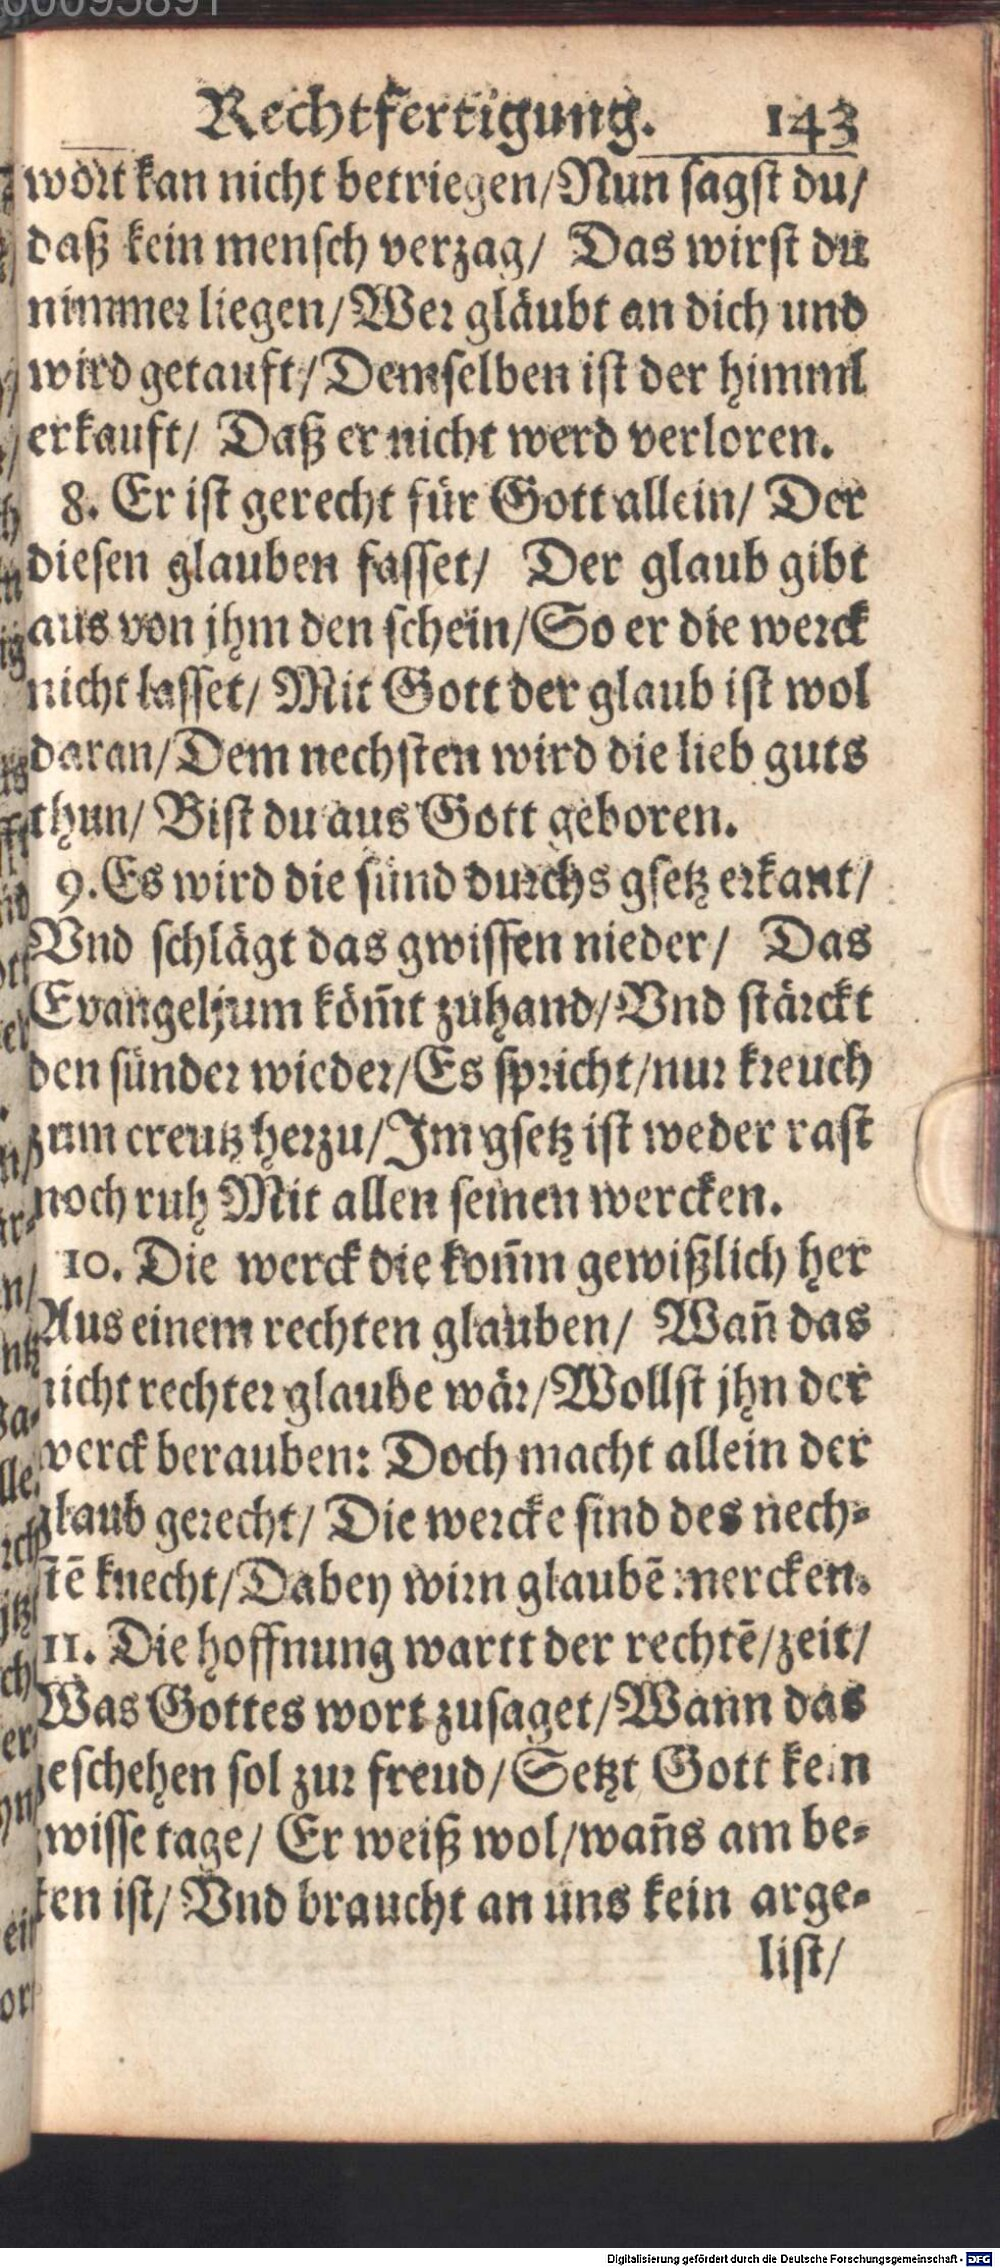 Rechtfertigung. 143
wort kan nicht betriegen/Nun sagst du/
daß kein mensch verzag/ Das wirst du
nimmer liegen/Wer gläubt an dich und
wird getauft/Demselben ist der himml
erkauft/ Daß er nicht werd verloren.
8. Er ist gerecht für Gott allein/ Der
diesen glauben fasset/ Der glaub gibt
aus von jhm den schein/So er die werck
nicht lasset/ Mit Gott der glaub ist wol
daran/Dem nechsten wird die lieb guts
thun/ Bist du aus Gott geboren.
9. Es wird die sünd durchs gsetz erkant/
Vnd schlägt das gwissen nieder/ Das
Evangeljum köm̃t zuhand/Vnd stärckt
den sünder wieder/Es spricht/nur kreuch
zum creutz herzu/Jm gsetz ist weder rast
noch ruh Mit allen seinen wercken.
10. Die werck die kom̃n gewißlich her
Aus einem rechten glauben/ Wañ das
nicht rechter glaube wär/Wollst jhn der
werck berauben: Doch macht allein der
glaub gerecht/ Die wercke sind des nech-
stẽ knecht/Dabey wirn glaubẽ mercken.
11. Die hoffnung wartt der rechtẽ/zeit/
Was Gottes wort zusaget/Wann das
geschehen sol zur freud/Setzt Gott kein
gwisse tage/ Er weiß wol/wañs am be-
sten ist/ Vnd braucht an uns kein arge-
list/
Digitalisierung gefördert durch die Deutsche Forschungsgemeinschaft - DFG